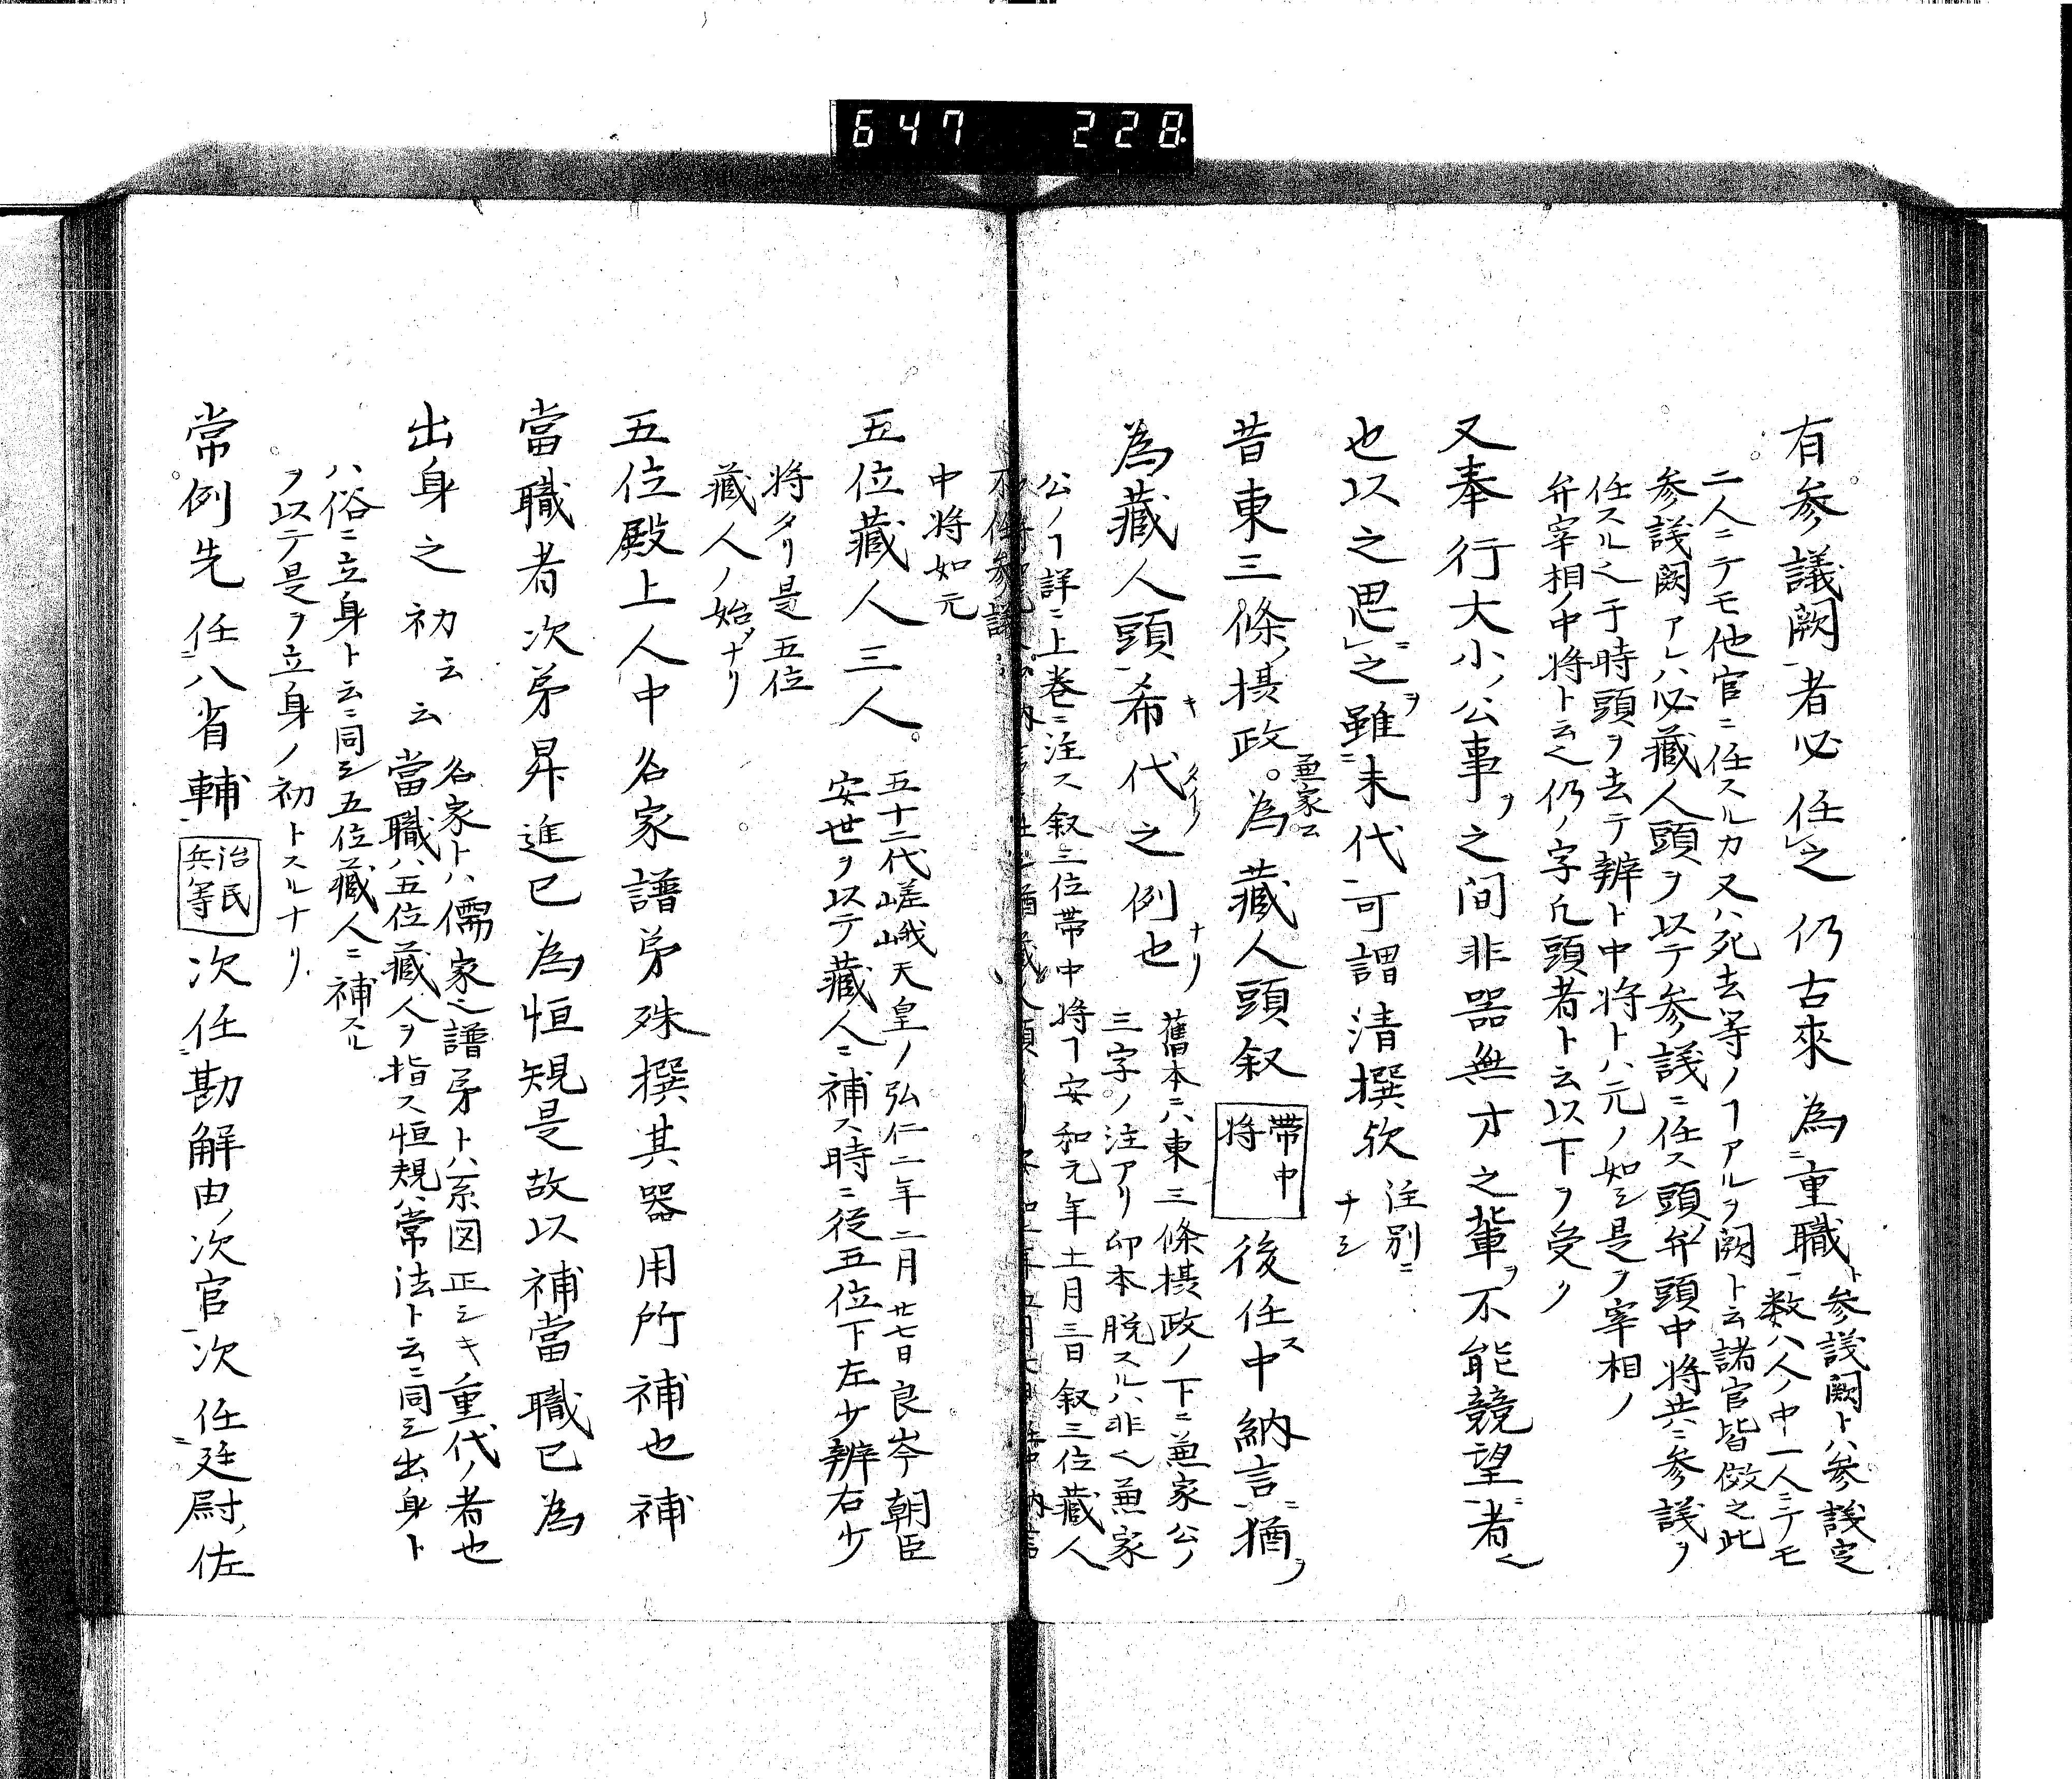 647 228
有参議闕者必任之仍古來為重職
参議闕トハ参議定
数八人ノ中一人ニテモ
二人ニテモ他官ニ任スルカ又ハ死去等ノヿアルヲ闕ト云諸官皆倣之此
参議闕アレハ必藏人頭ヲ以テ参議ニ任ス頭弁頭中将共ニ参議ヲ
任スル也于時頭ヲ去テ辨ト中将トハ元ノ如シ是ヲ宰相ノ
弁宰相ノ中将ト云也仍ノ字凡頭者ト云以下ヲ受ク
又奉行大小ノ公事ヲ之间非器無才之輩ヲ不能競望者也
也以之思之ヲ雖未代可謂清撰欤
注別ニ
ナシ
昔東三條ノ摂政為藏人頭叙
兼家公
帶中
将
後任ス中納言猶ヲ
為藏人頭希キ代タリノ之例也ナリ
舊本ニハ東三條摂政ノ下ニ兼家公ノ
三字ノ注アリ印本脱スルハ非也兼家
公ノヿ詳ニ上卷ニ注ス叙三位帶中将ヿ安和元年十一月三日叙三位藏人
中将如元
五位藏人三人
五十二代嵯峨天皇ノ弘仁二年二月廿七日良岑朝臣
安世ヲ以テ藏人ニ補ス時ニ從五位下左少辨右少
将タリ是五位
藏人ノ始メナリ
五位殿上人中名家譜弟殊撰其器用所補也補
當職者次弟昇進已為恒規是故以補當職已為
出身之初云云
名家トハ儒家之譜弟トハ系図正シキ重代ノ者也
當職ハ五位藏人ヲ指ス恒規ハ常法ト云ニ同シ出身ト
ハ俗ニ立身ト云ニ同シ五位藏人ニ補スル
ヲ以テ是ヲ立身ノ初トスルナリ
常例先任八省輔
治民
兵等
次任勘解由次官次任廷尉佐